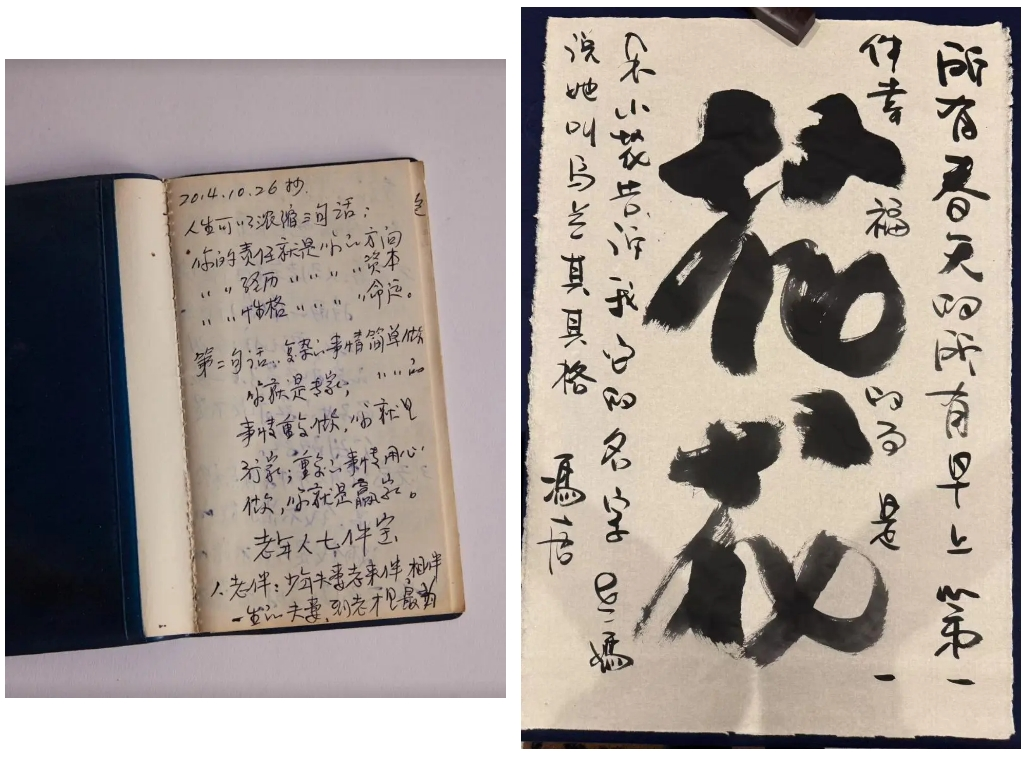 2014.10.26抄
人生可以浓缩三句话：
你的责任就是你的方向
〃〃经历〃〃〃〃资本
〃〃性格〃〃〃〃命运。
第二句话：复杂的事情简单做
你就是专家；
事情重复做，你就是
行家；重复的事情用心
做，你就是赢家。
老年人七件宝
1.老伴：少年夫妻老来伴，相伴
一生的夫妻，到老才是最
所有春天的所有早上 第一
件幸福的 是一
小花告诉我它的名字
说她叫马兰其其格